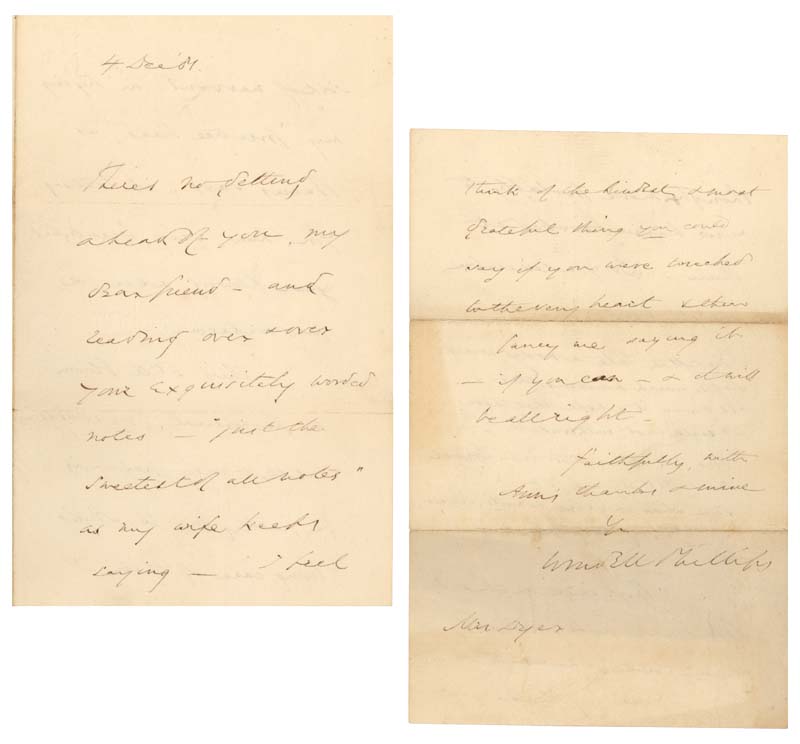 4 Dec '81.
There's no getting
ahead of you, my
dear friend - and
reading over & over
your exquisitely worded
notes - "just the
sweetest of all notes"
as my wife keeps
saying - I feel
think of the kindest & most
grateful thing you could
say if you were touched
to the very heart & then
fancy me saying it
- if you can - & it will
be all right -
Faithfully, with
Ann's thanks & mine
Yr
Wendell Phillips
Mrs Dyer -